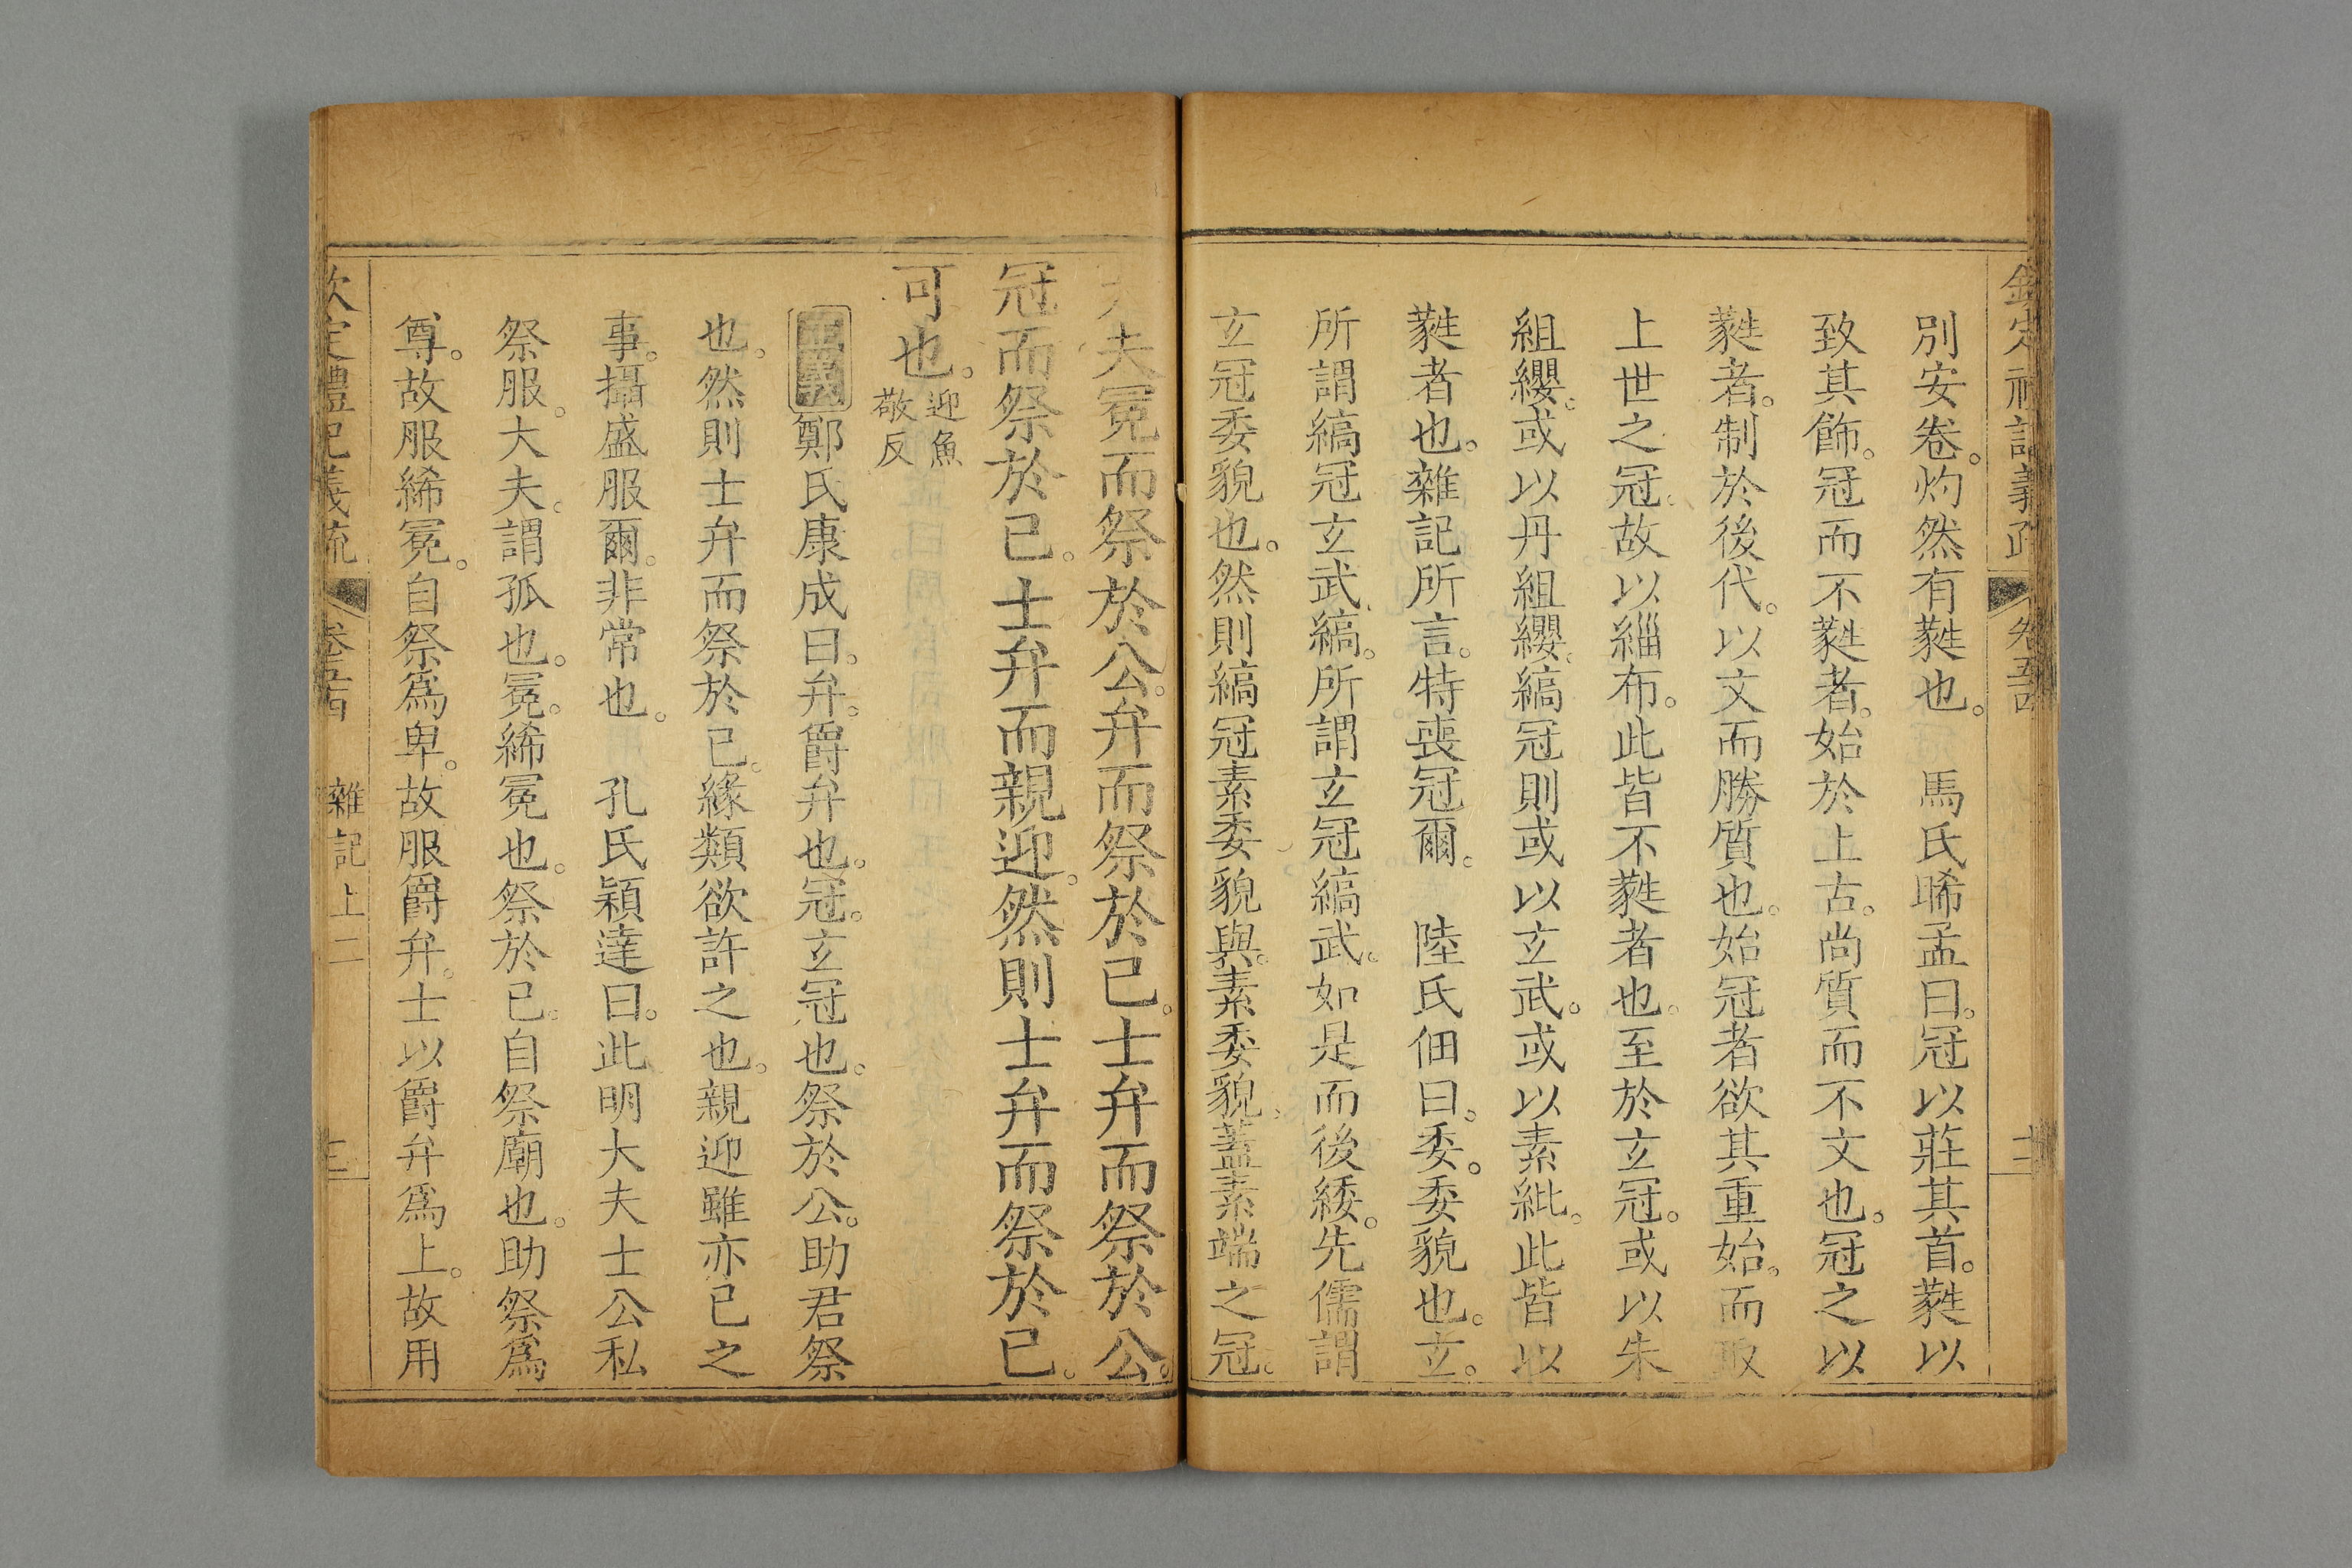 欽定禮記義疏 卷五十四 十二
別安卷。灼然有蕤也。 馬氏晞孟曰。冠以莊其首。蕤以
致其飾。冠而不蕤者。始於上古。尚質而不文也。冠之以
蕤者。制於後代。以文而勝質也。始冠者欲其重始。而敢
上世之冠。故以緇布。此皆不蕤者也。至於玄冠。或以朱
組纓。或以丹組纓。縞冠則或以玄武。或以素紕。此皆以
蕤者也。雜記所言。特喪冠爾。 陸氏佃曰。委。委貌也。玄。
所謂縞冠玄武縞。所謂玄冠縞武。如是而後緌。先儒謂
玄冠委貌也。然則縞冠素委貌與。素委貌。蓋素端之冠。
大夫冕而祭於公。弁而祭於已。士弁而祭於公。
冠而祭於已。士弁而親迎。然則士弁而祭於已。
可也。迎魚敬反
正義鄭氏康成曰。弁。爵弁也。冠。玄冠也。祭於公。助君祭
也。然則士弁而祭於已。緣類欲許之也。親迎雖亦已之
事。攝盛服爾。非常也。 孔氏穎達曰。此明大夫士公私
祭服。大夫。謂孤也。冕。絺冕也。祭於已。自祭廟也。助祭爲
尊。故服絺冕。自祭爲卑。故服爵弁。士以爵弁爲上。故用
欽定禮記義疏 卷五十四 雜記上二 三